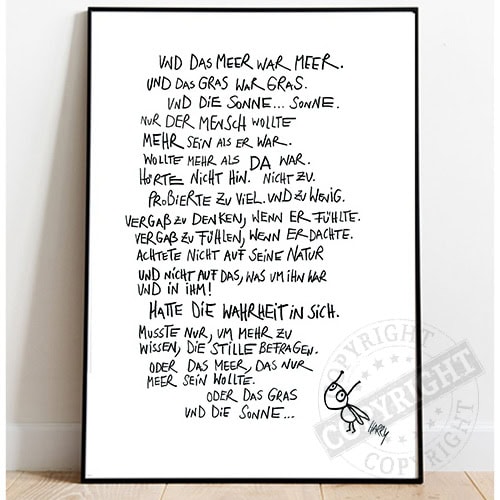 UND DAS MEER WAR MEER.
UND DAS GRAS WAR GRAS.
UND DIE SONNE... SONNE.
NUR DER MENSCH WOLLTE
MEHR SEIN ALS ER WAR.
WOLLTE MEHR ALS DA WAR.
HÖRTE NICHT HIN. NICHT ZU.
PROBIERTE ZU VIEL. UND ZU WENIG.
VERGAß ZU DENKEN, WENN ER FÜHLTE.
VERGAß ZU FÜHLEN, WENN ER DACHTE.
ACHTETE NICHT AUF SEINE NATUR
UND NICHT AUF DAS, WAS UM IHN WAR
UND IN IHM!
HATTE DIE WAHRHEIT IN SICH.
MUSSTE NUR, UM MEHR ZU
WISSEN, DIE STILLE BEFRAGEN.
ODER DAS MEER, DAS NUR
MEER SEIN WOLLTE.
ODER DAS GRAS
UND DIE SONNE...
HARRY
COPYRIGHT
COPYRIGHT
COPYRIGHT